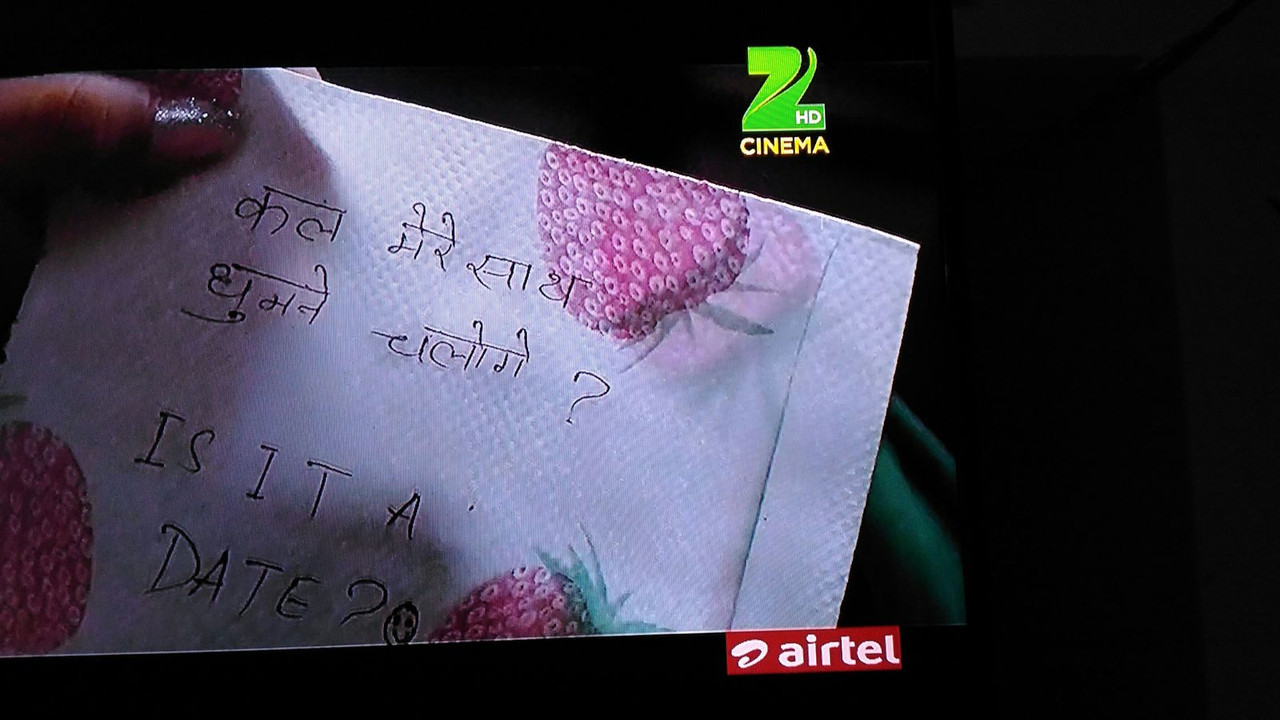 Z HD
CINEMA
कल मेरे साथ
घुमने चलोगे ?
IS IT A
DATE ?
airtel